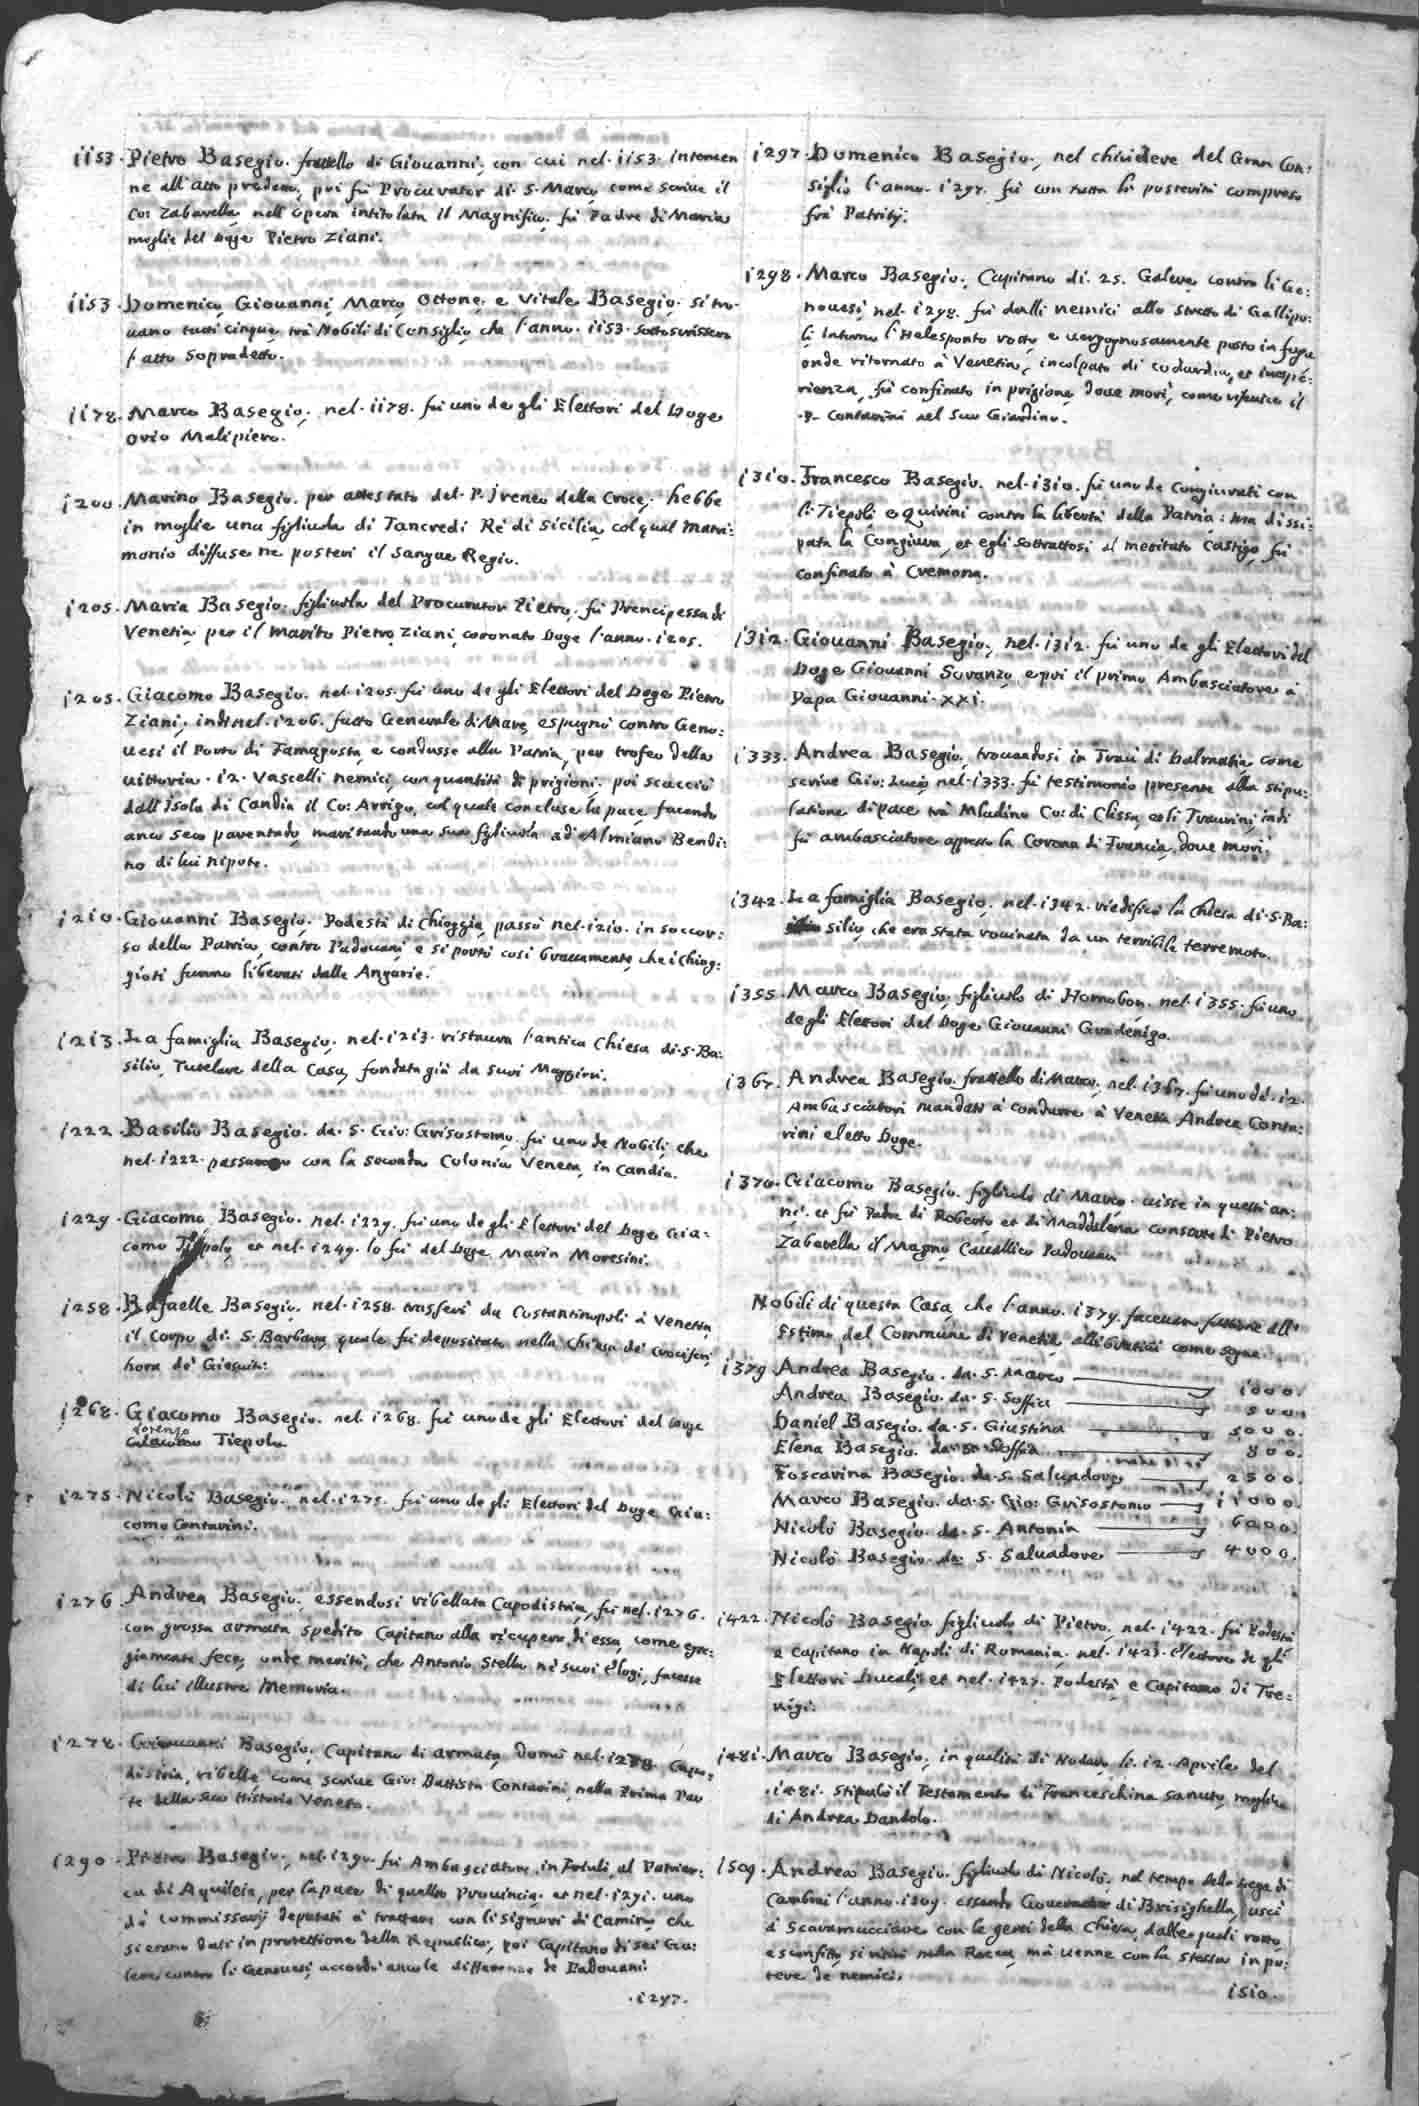 1153. Pietro Basegio. fratello di Giouanni, con cui nel. 1153. interuen
ne all'atto predetto, poi fù Procurator di. S. Marco, come scriue il
Co: Zabarella nell'opera intitolata il Magnifico. fù Padre di Maria
moglie del Doge Pietro Ziani.
1153. Domenico, Giouanni, Marco, Ottone, e Vitale Basegio. si tro-
uano tutti cinque, trà Nobili di Consiglio, che l'anno. 1153. sottoscrissero
l'atto sopradetto.
1178. Marco Basegio, nel. 1178. fù uno de gli Elettori del Doge
Orio Malipiero.
1200. Marino Basegio. per attestato del. P. Ireneo della Croce, hebbe
in moglie una figliuola di Tancredi Rè di Sicilia, col qual Matri:
monio diffuse ne posteri il Sangue Regio.
1205. Maria Basegio. figliuola del Procurator Pietro, fù Prencipessa di
Venetia, per il Marito Pietro Ziani, coronato Doge l'anno. 1205.
1205. Giacomo Basegio. nel. 1205. fù uno de gli Elettori del Doge Pietro
Ziani, indi nel. 1206. fatto Generale di Mare, espugnò contro Geno:
uesi il Porto di Famagosta, e condusse alla Patria, per trofeo della
uittoria. 12. Vascelli nemici, con quantità di prigioni. poi scacciò
dall'Isola di Candia il Co: Arrigo, col quale concluse la pace, facendo
anco seco parentado, maritando una sua figliuola ad Almiano Bendi:
no di lui nipote.
1210. Giouanni Basegio. Podestà di Chioggia, passò nel. 1210. in soccor:
so della Patria, contro Padouani, e si portò così brauamente, che i Chiog:
gioti furono liberati dalle Angarie.
1213. La famiglia Basegio. nel. 1213. ristaura l'antica Chiesa di. S. Ba:
silio, Tutelare della Casa, fondata già da suoi Maggiori.
1222. Basilio Basegio. da. S. Gio: Grisostomo. fù uno de Nobili, che
nel. 1222. passarono con la seconda Colonia Veneta, in Candia.
1229. Giacomo Basegio. nel. 1229. fù uno de gli Elettori del Doge Gia:
como Tiepolo, et nel. 1249. lo fù del Doge Marin Moresini.
1258. Rafaelle Basegio. nel. 1258. trasferì da Costantinopoli à Venetia
il Corpo di. S. Barbara, quale fù depositato nella Chiesa de' Crociferi,
hora de' Giesuiti.
1268. Giacomo Basegio. nel. 1268. fù uno de gli Elettori del Doge
Lorenzo
Giacomo Tiepolo.
1275. Nicolò Basegio. nel. 1275. fù uno de gli Elettori del Doge Gia:
como Contarini.
1276. Andrea Basegio, essendosi ribellata Capodistria, fù nel. 1276.
con grossa armata spedito Capitano alla ricupera di essa, come egre:
giamente fece, onde meritò, che Antonio Stella ne suoi Elogi, facesse
di lui illustre Memoria.
1278. Giouanni Basegio. Capitano di armata, domò nel. 1278. Capo,
distria, ribelle, come scriue Gio: Battista Contarini, nella Prima Par
te della sua Historia Veneta.
1290. Pietro Basegio, nel. 1290. fù Ambasciatore, in Friuli, al Patriar:
ca di Aquileia, per la pace di quella Prouincia, et nel. 1291. uno
de' Commissarij deputati à trattare con li Signori di Camino, che
si erano dati in protettione della Republica, poi Capitano di sei Ga:
lere, contro li Genouesi, accordò anco le differenze de Padouani.
. 1297.
1297. Domenico Basegio, nel chiudere del Gran Con:
siglio l'anno. 1297. fù con tutta la posterità compreso
frà Patritij.
1298. Marco Basegio, Capitano di. 25. Galere, contro li Ge:
nouesi, nel. 1298. fù dalli nemici allo stretto di Gallipo:
li intorno l'Helesponto rotto, e uergognosamente posto in fuga,
onde ritornato à Venetia, incolpato di codardia, et inespe:
rienza, fù confinato in prigione, doue morì, come riferisce il
Contarini nel suo Giardino.
1310. Francesco Basegio. nel. 1310. fù uno de Congiurati con
li Tiepoli, e Quirini contro la libertà della Patria: ma dissi:
pata la Congiura, et egli sottrattosi al meritato castigo, fù
confinato à Cremona.
1312. Giouanni Basegio, nel. 1312. fù uno de gli Elettori del
Doge Giouanni Soranzo, e poi il primo Ambasciatore à
Papa Giouanni. XXI.
1333. Andrea Basegio, trouandosi in Traù di Dalmatia, come
scriue Gio: Lucio, nel. 1333. fù testimonio presente alla stipu:
latione di pace trà Mladino Co: di Clissa, e li Traurini, indi
fù ambasciatore appresso la Corona di Francia, doue morì.
1342. La famiglia Basegio, nel. 1342. riedificò la Chiesa di. S. Ba:
silio, che era stata rouinata da un terribile terremoto.
1355. Marco Basegio, figliuolo di Homobon. nel. 1355. fù uno
de gli Elettori del Doge Giouanni Gradenigo.
1367. Andrea Basegio. fratello di Marco, nel. 1367. fù uno de'. 12.
Ambasciatori mandati à condurre à Venetia Andrea Conta:
rini eletto Doge.
1370. Giacomo Basegio. figliuolo di Marco. uisse in questi an:
ni. et fù Padre di Roberto, et di Maddalena consorte di Pietro
Zabarella il Magno, Cauallier Padouano.
Nobili di questa Casa, che l'anno. 1379. faceuano fattione all'
Estimo del Commune di Venetia, allibratisi come segue.
1379 Andrea Basegio. da. S. Marco — 1000.
Andrea Basegio. da. S. Soffia — 500.
Daniel Basegio. da. S. Giustina — 5000.
Elena Basegio. da. S. Soffia — 800.
Foscarina Basegio. da. S. Saluadore — 2500.
Marco Basegio. da. S. Gio: Grisostomo — 11000.
Nicolò Basegio. da. S. Antonin — 6000.
Nicolò Basegio. da. S. Saluadore — 4000.
1422. Nicolò Basegio. figliuolo di Pietro, nel. 1422. fù Podestà
e Capitano in Napoli di Romania. nel. 1423. Elettore de gli
Elettori Ducali, et nel. 1427. Podestà e Capitano di Tre:
uigi.
1481. Marco Basegio, in qualità di Nodaro, li. 12. Aprile del
. 1481. stipulò il Testamento di Franceschina Sanuto, moglie
di Andrea Dandolo.
1509. Andrea Basegio. figliuolo di Nicolò, nel tempo della Lega di
Cambrai l'anno. 1509. essendo Gouernatore di Brisighella, uscì
à scaramucciare con le genti della Chiesa, dalle quali rotto,
e sconfitto, si ritirò nella Rocca, mà uenne con la stessa in po:
tere de nemici.
1510.